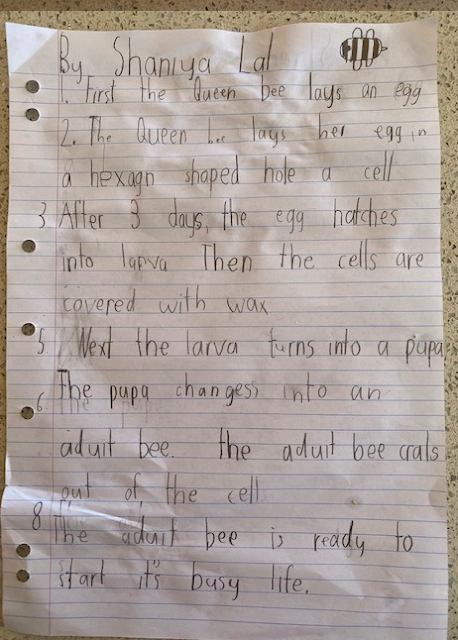 By Shaniya Lal
1. First the Queen bee lays an egg
2. The Queen bee lays her egg in
a hexagn shaped hole a cell
3 After 3 days, the egg hatches
into larva Then the cells are
covered with wax
5 Next the larva turns into a pupa
6. The pupa changess into an
aduit bee. the aduit bee crals
out of the cell
8 The aduit bee is ready to
start it's busy life.